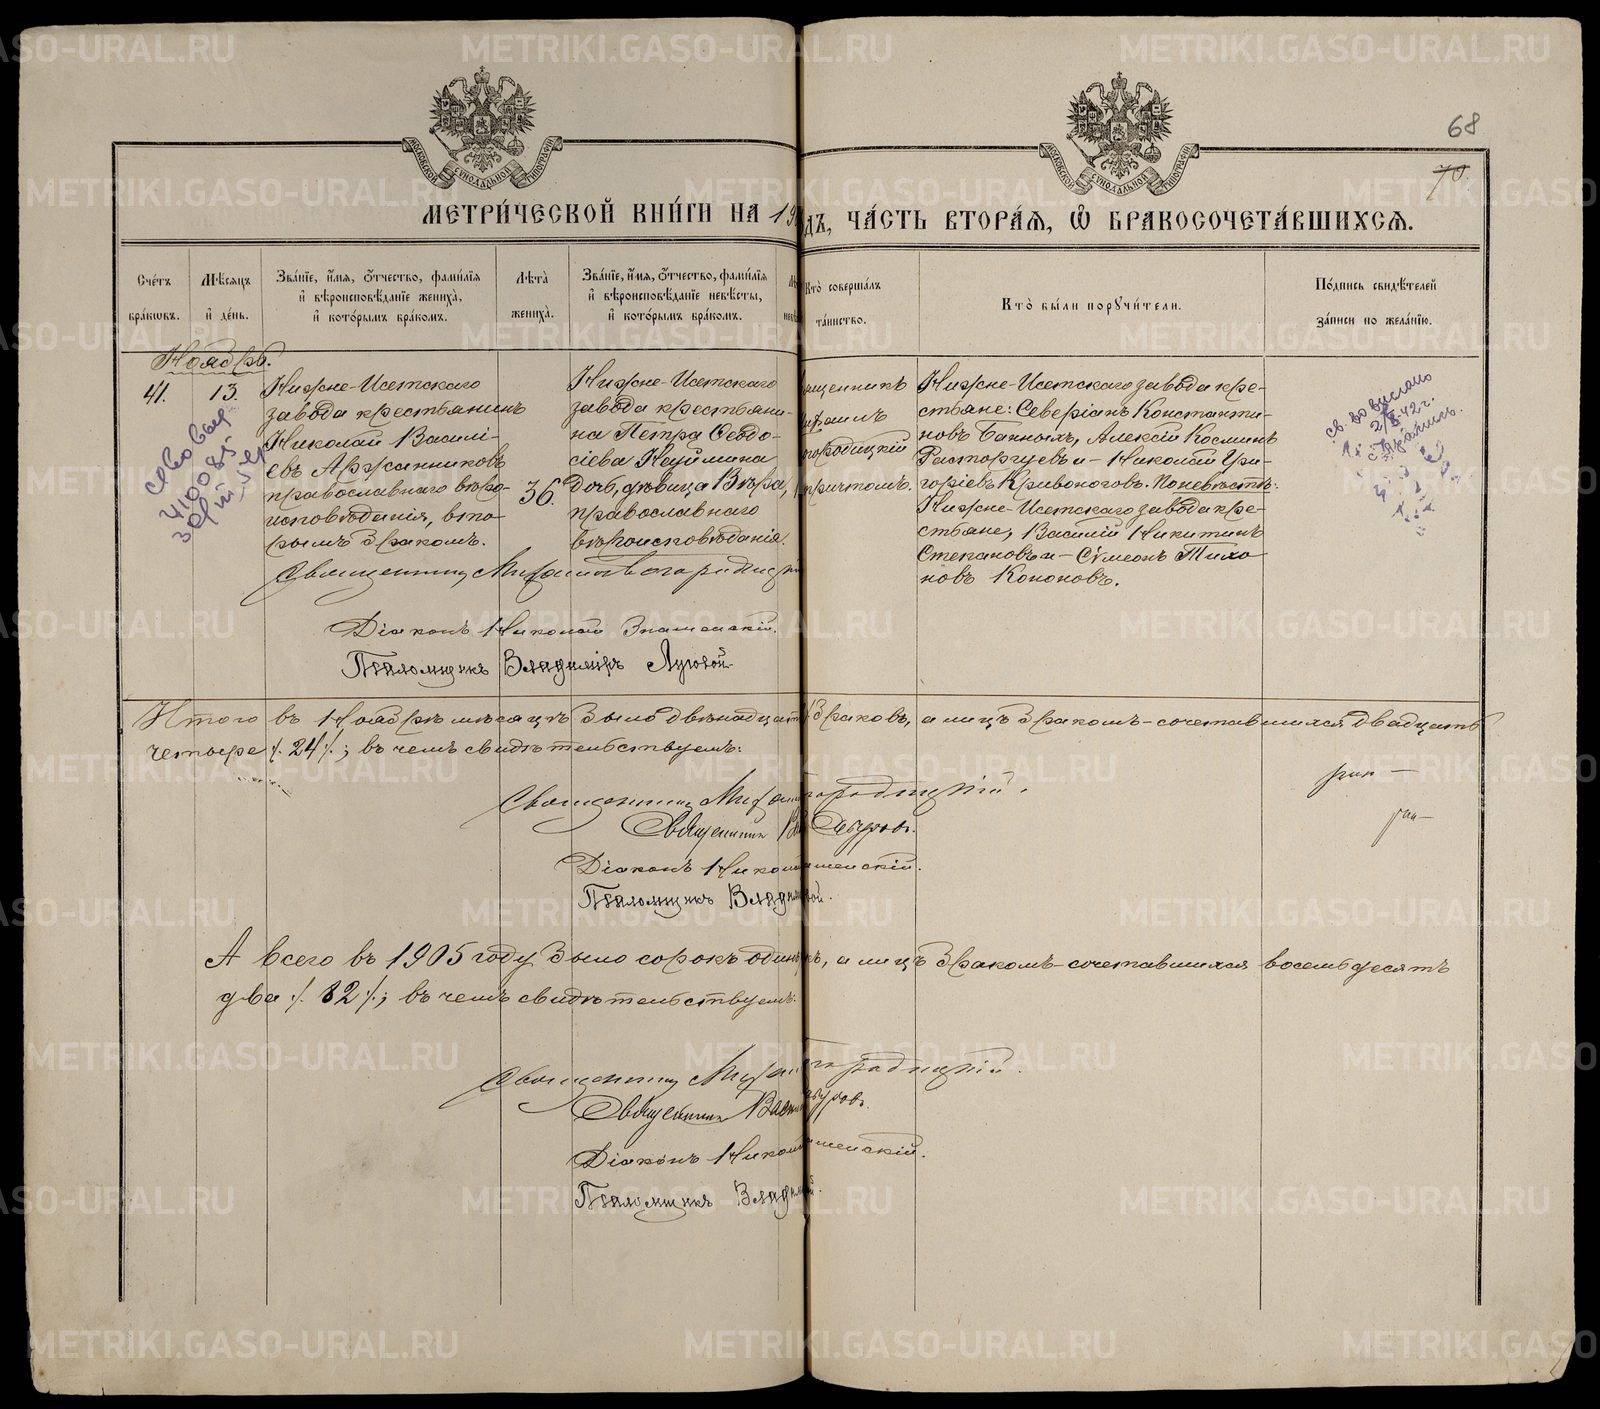 68
70.
МОСКОВСКОЙ СѴНОДАЛЬНОЙ ТИПОГРАФІИ
МОСКОВСКОЙ СѴНОДАЛЬНОЙ ТИПОГРАФІИ
МЕТРИ́ЧЕСКОЙ КНИ́ГИ НА 19
дъ, ЧА́СТЬ ВТОРА́Я, Ѽ БРАКОСОЧЕТА́ВШИХСЯ.
Сче́тъ бра́кѡвъ.
Мѣ́сяцъ и҆ де́нь.
Зва́нїе, и҆́мя, ѻ҆́тчество, фами́лїя
и҆ вѣроисповѣ́данїе жениха̀,
и҆ кото́рымъ бра́комъ.
Лѣ́та жениха̀.
Зва́нїе, и҆́мя, ѻ҆́тчество, фами́лїя
и҆ вѣроисповѣ́данїе невѣ́сты,
и҆ кото́рымъ бра́комъ.
Кто̀ соверша́лъ
та́инство.
Кто̀ бы́ли порꙋчи́тели.
По́дпись свидѣ́телей
за́писи по жела́нїю.
Ноябрь.
41.
13.
Нижне-Исетскаго
завода крестьянинъ
Николай Василі-
евъ Аржанниковъ
православнаго вѣро-
исповѣданія, вто-
рымъ бракомъ.
36.
Нижне-Исетскаго
завода крестьяни-
на Петра Ѳеодо-
сіева Наймина
дочь, дѣвица Вѣра,
православнаго
вѣроисповѣданія.
ященникъ
ихаилъ
городицкій
причтомъ.
Нижне-Исетскаго завода кре-
стьяне: Северіанъ Константи-
новъ Банныхъ, Алексій Косминъ
Расторгуевъ и Николай Гри-
горіевъ Кривоноговъ. По невѣстѣ:
Нижне-Исетскаго завода кре-
стьяне, Василій Никитинъ
Степановъ и Сѵмеонъ Тихо-
новъ Кононовъ.
Священникъ Михаилъ Богородицкі
Діаконъ Николай Знаменскій.
Псаломщикъ Владиміръ Луговой
Итого въ Ноябрѣ мѣсяцѣ было двѣнадцать браковъ, а лицъ бракомъ сочетавшихся двадцать
четыре /. 24 /.; въ чемъ свидѣтельствуемъ:
Священникъ Михаи городицкій.
Священникъ
Діаконъ Никола менскій.
Псаломщикъ Владим вой.
А всего въ 1905 году было сорокъ одинъ къ, а лицъ бракомъ сочетавшихся восемьдесятъ
два /. 82 /.; въ чемъ свидѣтельствуемъ:
Священникъ Миха городицкій.
Священникъ Васи
Діаконъ Никола менскій.
Псаломщикъ Влади й.
METRIKI.GASO-URAL.RU